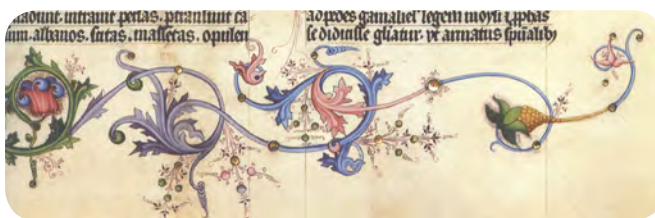 uadunt. intrant persas. ptransiunt ca
albanos. scitas. massetas. opulen
ad pedes gamaliel legem moysi ⁊ pphas
se didicisse gliatur. armatus spualib